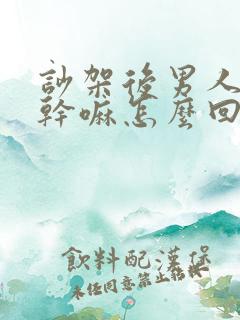 訬架後男人
幹嘛怎麼回
飲料配漢堡
未经同意禁止转载